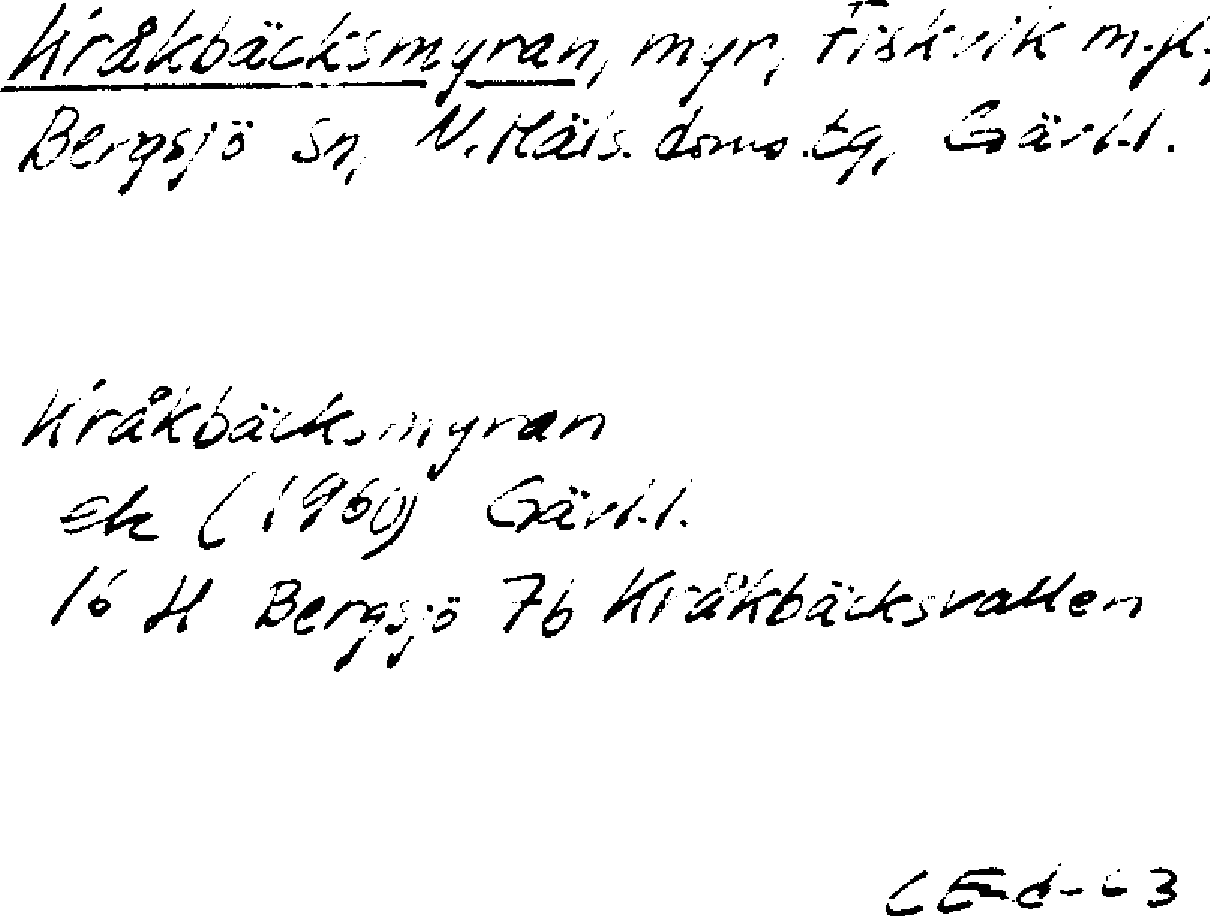 Kråkbäcksmyran, myr, Fiskvik m.fl.,
Bergsjö sn, N. Häls. doms. tg, Gävl.l.
Kråkbäcksmyran
ek (1960) Gävl.l.
16 H Bergsjö 7b Kråkbäcksvallen